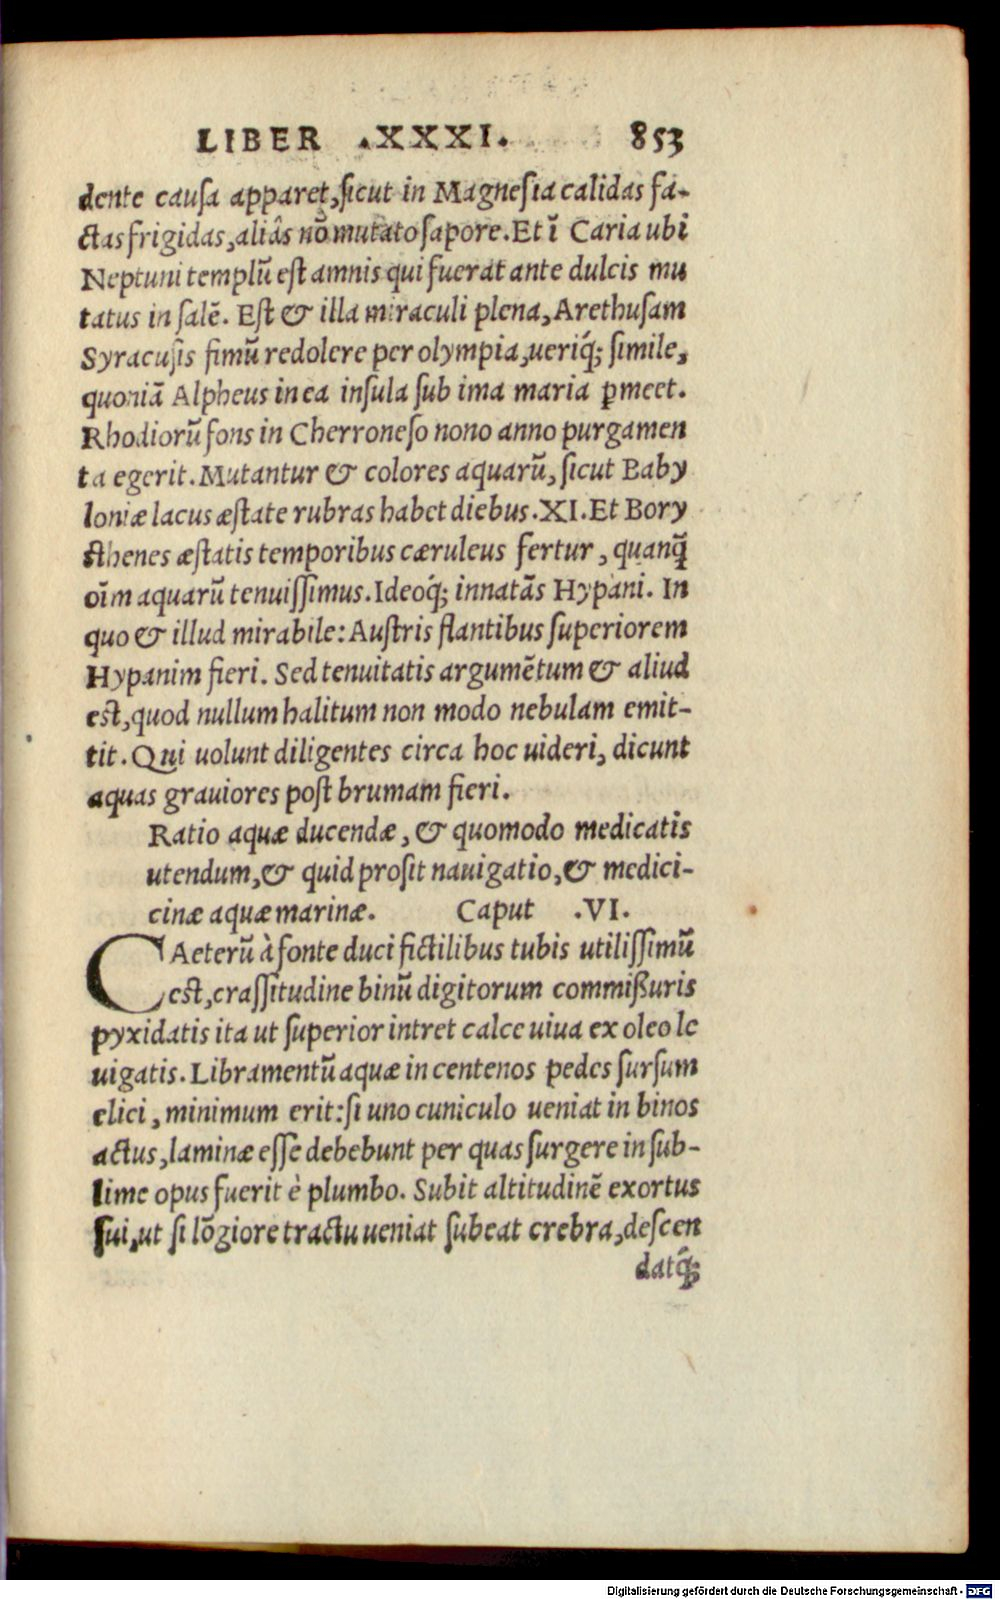 LIBER .XXXI. 853
dente causa apparet, sicut in Magnesia calidas fa-
ctas frigidas, aliâs nõ mutato sapore. Et ĩ Caria ubi
Neptuni templũ est amnis qui fuerat ante dulcis mu
tatus in salẽ. Est & illa miraculi plena, Arethusam
Syracusis fimũ redolere per olympia, ueriq́; simile,
quoniã Alpheus in ea insula sub ima maria ꝑmeet.
Rhodiorũ fons in Cherroneso nono anno purgamen
ta egerit. Mutantur & colores aquarũ, sicut Baby
loniæ lacus æstate rubras habet diebus .XI. Et Bory
sthenes æstatis temporibus cæruleus fertur, quanq̃
oĩm aquarũ tenuissimus. Ideoq́; innatãs Hypani. In
quo & illud mirabile: Austris flantibus superiorem
Hypanim fieri. Sed tenuitatis argumẽtum & aliud
est, quod nullum halitum non modo nebulam emit-
tit. Qui uolunt diligentes circa hoc uideri, dicunt
aquas grauiores post brumam fieri.
Ratio aquæ ducendæ, & quomodo medicatis
utendum, & quid prosit nauigatio, & medici-
cinæ aquæ marinæ. Caput .VI.
CAeterũ à fonte duci fictilibus tubis utilissimũ
est, crassitudine binũ digitorum commißuris
pyxidatis ita ut superior intret calce uiua ex oleo le
uigatis. Libramentũ aquæ in centenos pedes sursum
elici, minimum erit: si uno cuniculo ueniat in binos
actus, laminæ esse debebunt per quas surgere in sub-
lime opus fuerit è plumbo. Subit altitudinẽ exortus
sui, ut si lõgiore tractu ueniat subeat crebra, descen
datq́;
Digitalisierung gefördert durch die Deutsche Forschungsgemeinschaft - DFG